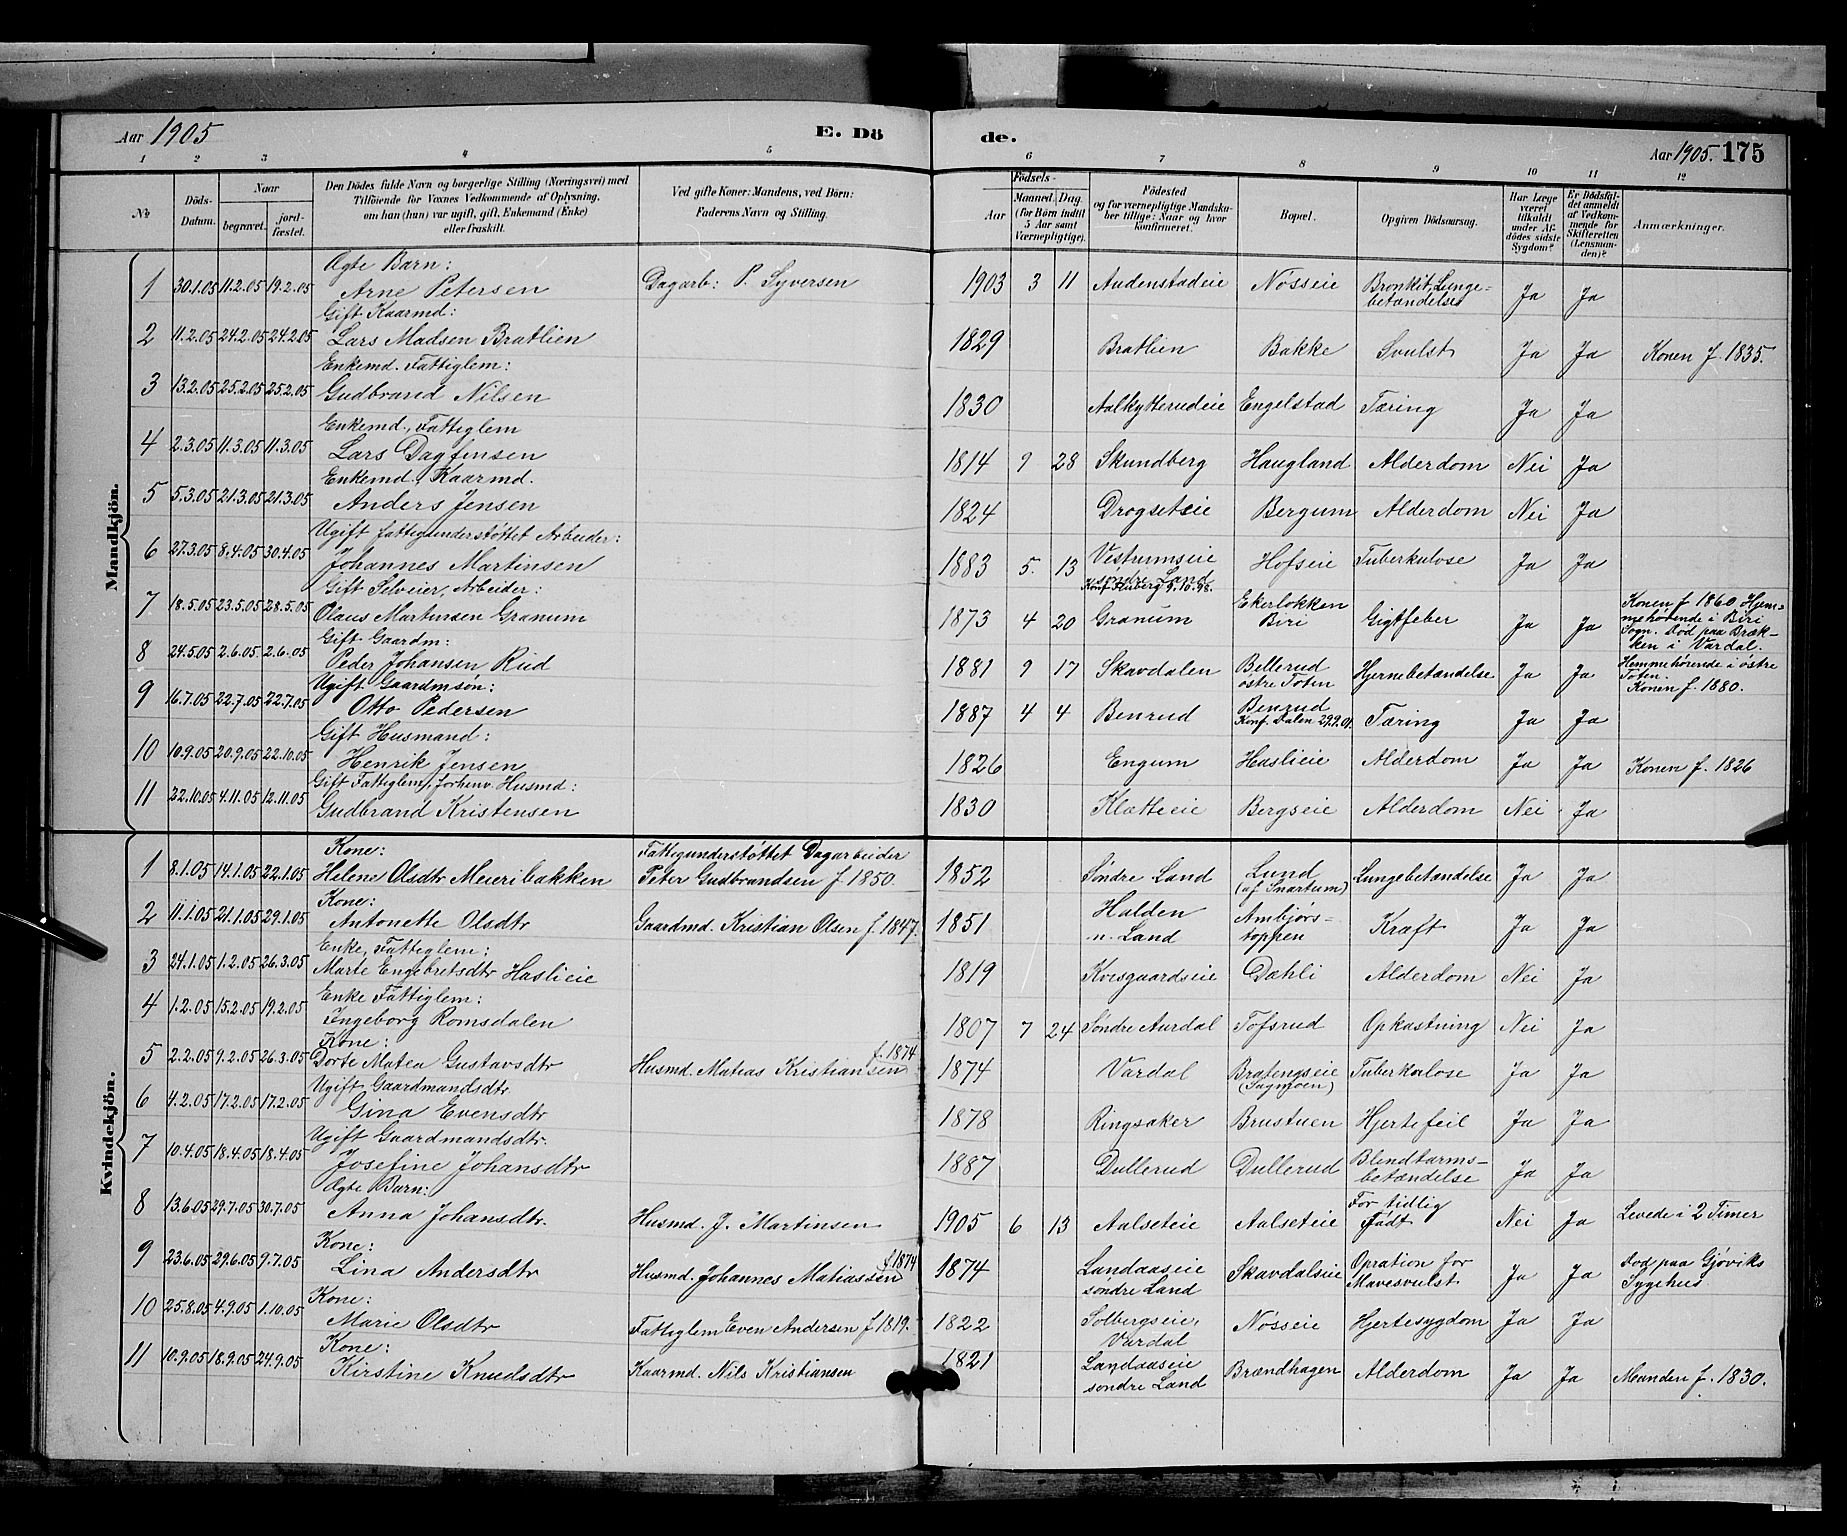 Aar 1905 E. Dö de. Aar 1905. 175
1 2 3 4 5 6 7 8 9 10 11 12
№ Döds-Datum. Naar begravet. jordfæstet. Den Dödes fulde Navn og borgerlige Stilling (Næringsvei) med Tilföiende for Voxnes Vedkommende af Oplysning, om han (hun) var ugift, gift, Enkemand (Enke) eller fraskilt. Ved gifte Koner: Mandens, ved Börn: Faderens Navn og Stilling. Födsels- Aar Maaned. Dag. (for Börn indtil 5 Aar samt Værnepligtige). Födested og for værnepligtige Mandskaber tillige: Naar og hvor konfirmeret. Bopæl. Opgiven Dödsaarsag. Har Læge været tilkaldt under Afdödes sidste Sygdom? Er Dödsfaldet anmeldt af Vedkommende for Skifteretten (Lensmanden)? Anmærkninger.
Mandkjön.
Ægte Barn:
1 30.1.05 11.2.05 19.2.05 Arne Petersen Dagarb: P. Syversen 1903 3 11 Audenstadeie Nösseie Bronkit, Lungebetændelse Ja Ja
Gift Kaarmd:
2 11.2.05 24.2.05 24.2.05 Lars Madsen Bratlien 1829 Bratlien Bakke Svulst Ja Ja Konen f. 1835.
Enkemd. Fattiglem:
3 13.2.05 25.2.05 25.2.05 Gudbrand Nilsen 1830 Aalkytterudeie Engelstad Tæring Ja Ja
Enkemd., Fattiglem
4 2.3.05 11.3.05 11.3.05 Lars Dagfinsen 1814 9 28 Skundberg Haugland Alderdom Nei Ja
Enkemd., Kaarmd.
5 5.3.05 21.3.05 21.3.05 Anders Jensen 1824 Drogseteie Bergum Alderdom Nei Ja
Ugift fattigunderstöttet Arbeider:
6 27.3.05 8.4.05 30.4.05 Johannes Martinsen 1883 5. 13 Vestrumseie söndre Land Konf. Fluberg 9.10.98. Hofseie Tuberkulose Ja Ja
Gift Selveier, Arbeider:
7 18.5.05 23.5.05 28.5.05 Olaus Martinsen Granum 1873 4 20 Granum Ekerlokken Biri Gigtfeber Ja Ja Konen f 1860 Hjemmehörende i Biri Sogn. Död paa Brækken i Vardal.
Gift Gaardm:
8 24.5.05 2.6.05 2.6.05 Peder Johansen Rud 1881 9 17 Skavdalen Bellerud östre Toten Hjernebetændelse Ja Ja Hemmehörende i östre Toten. Konen f. 1880.
Ugift Gaardmsön:
9 16.7.05 22.7.05 22.7.05 Otto Pedersen 1887 4 4 Benrud Benrud Konf. Dalen 29.9.01. Tæring Ja Ja
Gift Husmand:
10 10.9.05 20.9.05 22.10.05 Henrik Jensen 1826 Engum Haslieie Alderdom Ja Ja Konen f. 1826
Gift Fattiglem, forhenv. Husmd:
11 22.10.05 4.11.05 12.11.05 Gudbrand Kristensen 1830 Klætteie Bergseie Alderdom Nei Ja
Kvindekjön.
Kone: Fattigunderstöttet Dagarbeider
1 8.1.05 14.1.05 22.1.05 Helene Olsdtr Meieribakken Peter Gudbrandsen f. 1850. 1852 Söndre Land Lund (af Snartum) Lungebetændelse Ja Ja
Kone:
2 11.1.05 21.1.05 29.1.05 Antonette Olsdtr Gaardmd. Kristian Olsen f. 1847. 1851 Halden n. Land Ambjörstoppen Kræft Ja Ja
Enke, Fattiglem:
3 24.1.05 1.2.05 26.3.05 Marte Engebretsdtr Haslieie 1819 Kvisgaardseie Dæhli Alderdom Nei Ja
Enke Fattiglem:
4 1.2.05 15.2.05 19.2.05 Ingeborg Romsdalen 1807 7 24 Söndre Aurdal Tofsrud Opkastning Nei Ja
Kone:
5 2.2.05 9.2.05 26.3.05 Dorte Matea Gustavsdtr Husmd. Matias Kristiansen f. 1874 1874 Vardal Bratengseie (Sagmoen) Tuberkulose Ja Ja
Ugift Gaardmandsdtr
6 4.2.05 17.2.05 17.2.05 Gina Evensdtr 1878 Ringsaker Brustuen Hjertefeil Ja Ja
Ugift Gaardmandsdtr.
7 10.4.05 18.4.05 18.4.05 Josefine Johansdtr 1887 Dullerud Dullerud Blendtarmsbetændelse Ja Ja
Ægte Barn:
8 13.6.05 29.7.05 30.7.05 Anna Johansdtr. Husmd. J. Martinsen 1905 6 13 Aalseteie Aalseteie For tidlig Födt Nei Ja Levede i 2 Timer
Kone:
9 23.6.05 29.6.05 9.7.05 Lina Andersdtr Husmd. Johannes Matiassen f. 1874 1874 Landaaseie söndre Land Skavdalseie Opration for Mavesvulst Ja Ja Död paa Gjöviks Sygehus
Kone:
10 25.8.05 4.9.05 1.10.05 Marie Olsdtr Fattiglem Even Andersen f. 1819. 1822 Solbergseie, Vardal Nösseie Hjertesygdom Ja Ja
Kone:
11 10.9.05 18.9.05 24.9.05 Kirstine Knudsdtr Kaarmd. Nils Kristiansen 1821 Landaaseie söndre Land Brændhagen Alderdom Ja Ja Manden f. 1830.